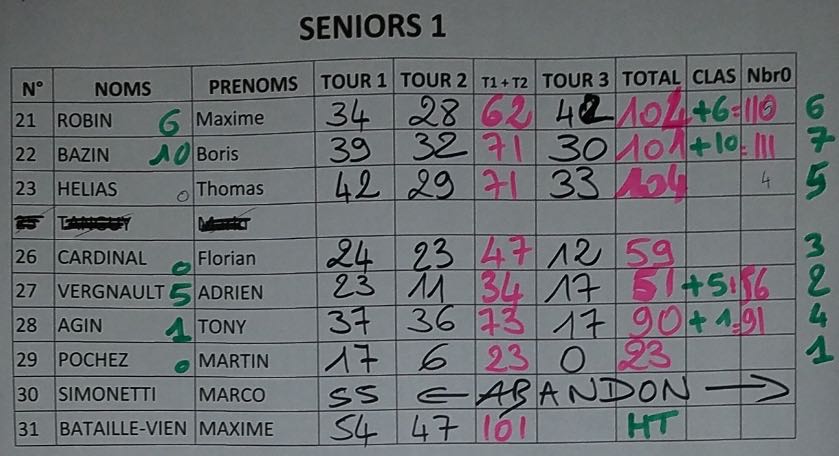 SENIORS 1
N° NOMS PRENOMS TOUR 1 TOUR 2 T1 + T2 TOUR 3 TOTAL CLAS Nbr0
21 ROBIN 6 Maxime 34 28 62 42 104 +6 =110 6
22 BAZIN 10 Boris 39 32 71 30 101 +10 =111 7
23 HELIAS 0 Thomas 42 29 71 33 104 4 5
25 TANGUY
26 CARDINAL 0 Florian 24 23 47 12 59 3
27 VERGNAULT 5 ADRIEN 23 11 34 17 51 +5 =56 2
28 AGIN 1 TONY 37 36 73 17 90 +1 =91 4
29 POCHEZ 0 MARTIN 17 6 23 0 23 1
30 SIMONETTI MARCO 55 ← ABANDON →
31 BATAILLE-VIEN MAXIME 54 47 101 HT